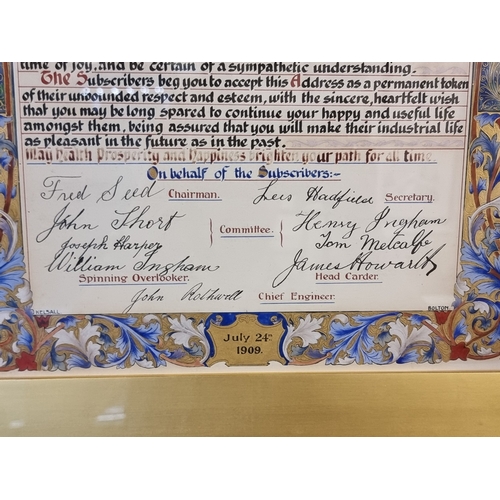 time of joy, and be certain of a sympathetic understanding.
The Subscribers beg you to accept this Address as a permanent token
of their unbounded respect and esteem, with the sincere, heartfelt wish
that you may be long spared to continue your happy and useful life
amongst them, being assured that you will make their industrial life
as pleasant in the future as in the past.
May Health Prosperity and Happiness brighten your path for all time.
On behalf of the Subscribers:-
Fred Seed Chairman. Lees Hadfield Secretary.
John Short Henry Ingham
Committee.
Joseph Harper Tom Metcalfe
William Ingham James Howarth
Spinning Overlooker. Head Carder.
John Rothwell Chief Engineer.
KELSALL BOLTON
July 24th
1909.